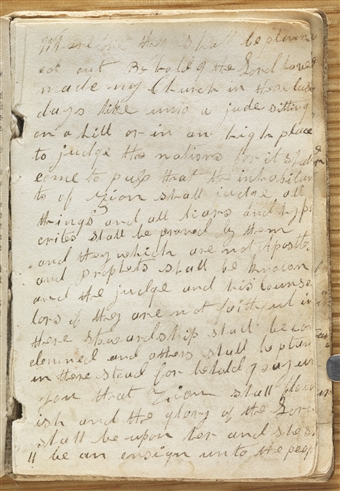 Wherefore they shall be plucked
out Behold I the Lord have
made my Church in these last
days like unto a jude sitting
on a hill or in an high place
to judge the nations for it shall
come to pass that the inhabitan
ts of Zion shall judge all
things and all liars and hypo
crites shall be proved by them
and they which are not Apostles
and prophets shall be known
and the judge and his counse
lors if they are not faithful in
there stewardship shall be con
demned and others shall be plan
in there stead for behold I say un
you that Zion shall flour
ish and the glory of the Lord
shall be upon her and she s
ll be an ensign unto the peop